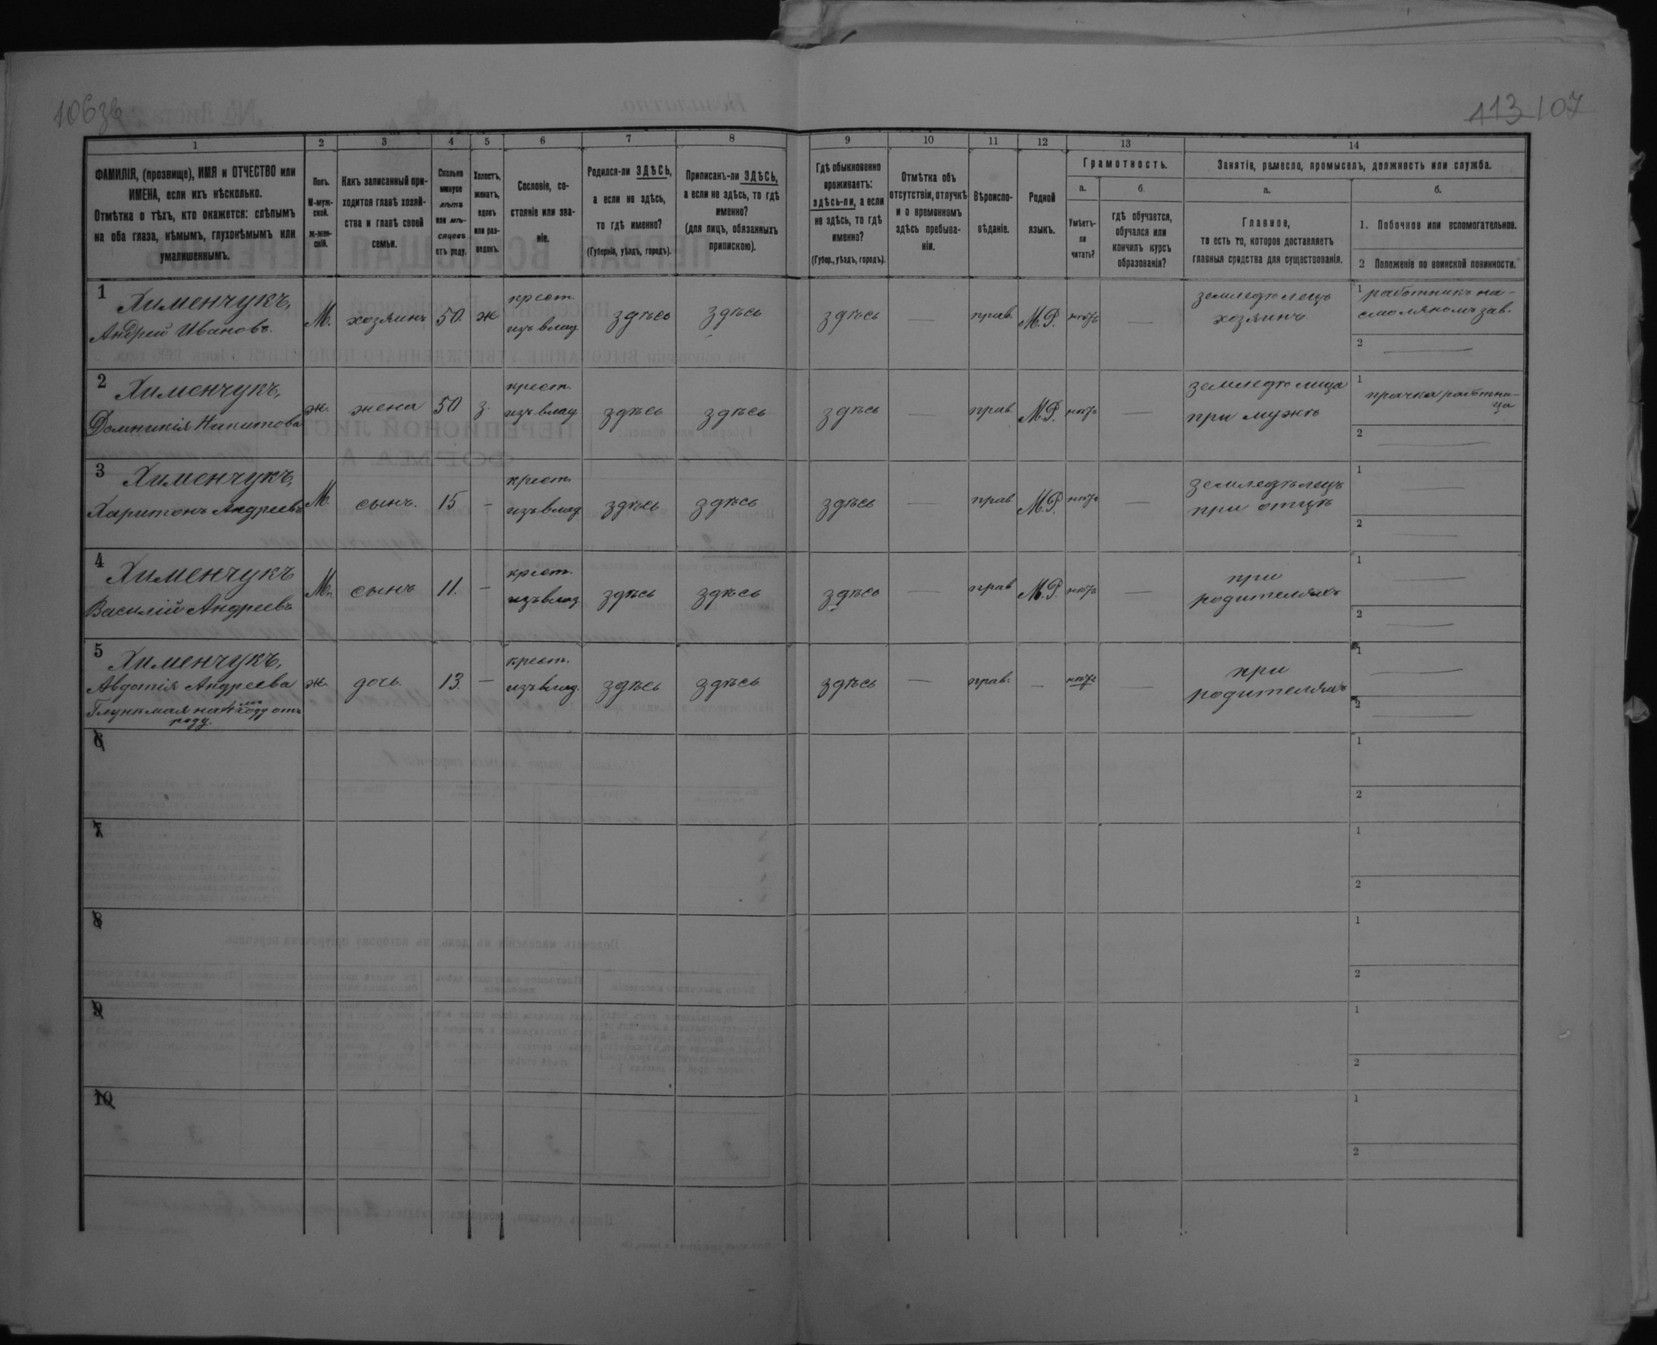 106зв
113 107
1
2
3
4
5
6
7
8
9
10
11
12
13
14
ФАМИЛІЯ, (прозвище), ИМЯ и ОТЧЕСТВО или
ИМЕНА, если ихъ нѣсколько.
Отмѣтка о тѣхъ, кто окажется: слѣпымъ
на оба глаза, нѣмымъ, глухонѣмымъ или
умалишеннымъ.
Полъ.
М-муж-
ской.
Ж-жен-
скій.
Какъ записанный при-
ходится главѣ хозяй-
ства и главѣ своей
семьи.
Сколько
минуло
лѣтъ
или мѣ-
сяцевъ
отъ роду.
Холостъ,
женатъ,
вдовъ
или раз-
веденъ.
Сословіе, со-
стояніе или зва-
ніе.
Родился-ли ЗДѢСЬ,
а если не здѣсь,
то гдѣ именно?
(Губернія, уѣздъ, городъ).
Приписанъ-ли ЗДѢСЬ,
а если не здѣсь, то гдѣ
именно?
(для лицъ, обязанныхъ
припискою).
Гдѣ обыкновенно
проживаетъ:
здѣсь-ли, а если
не здѣсь, то гдѣ
именно?
(Губер., уѣздъ, городъ).
Отмѣтка объ
отсутствіи, отлучкѣ
и о временномъ
здѣсь пребыва-
ніи.
Вѣроиспо-
вѣданіе.
Родной
языкъ.
Грамотность.
а.
б.
Умѣетъ-
ли
читать?
гдѣ обучается,
обучался или
кончилъ курсъ
образованія?
Занятіе, ремесло, промыселъ, должность или служба.
а.
б.
Главное,
то есть то, которое доставляетъ
главныя средства для существованія.
1. Побочное или вспомогательное.
2 Положеніе по воинской повинности.
1
Хименчукъ,
Андрей Ивановъ.
М.
хозяинъ
50.
ж
крест.
изъ влад.
здѣсь
здѣсь
здѣсь
—
прав.
М.Р.
нѣтъ
—
земледѣлецъ
хозяинъ
1 работникъ на-
смоляномъ зав.
2 —
2
Хименчукъ,
Домникія Никитова
ж.
жена
50
з.
крест.
изъ влад.
здѣсь
здѣсь
здѣсь
—
прав.
М.Р.
нѣтъ
—
земледѣлица
при мужѣ
1
прачка работни-
ца
2 —
3
Хименчукъ,
Харитонъ Андреевъ
М.
сынъ.
15
—
крест.
изъ влад.
здѣсь
здѣсь
здѣсь
—
прав
М.Р.
нѣтъ
—
земледѣлецъ
при отцѣ
1 —
2 —
4
Хименчукъ
Василій Андреевъ
М.
сынъ
11.
—
крест.
изъ влад.
здѣсь
здѣсь
здѣсь
—
прав
М.Р.
нѣтъ
—
при
родителяхъ
1 —
2 —
5
Хименчукъ,
Авдотія Андреева
роду.
ж.
дочь
13
—
крест.
изъ влад.
здѣсь
здѣсь
здѣсь
—
прав.
—
нѣтъ
—
при
родителяхъ
1 —
2 —
6
1
2
7
1
2
8
1
2
9
1
2
10
1
2